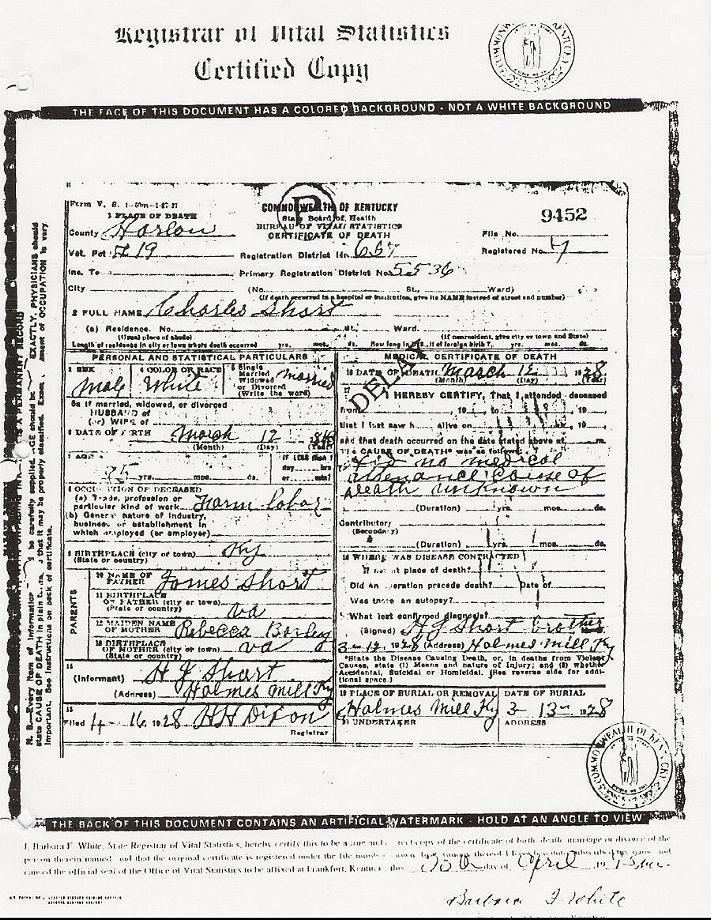 Registrar of Vital Statistics
Certified Copy
THE FACE OF THIS DOCUMENT HAS A COLORED BACKGROUND - NOT A WHITE BACKGROUND
Form V. S.
COMMONWEALTH OF KENTUCKY
State Board of Health
BUREAU OF VITAL STATISTICS
CERTIFICATE OF DEATH
1 PLACE OF DEATH
County Harlan
File No. 9452
Vot. Pct 19
Registration District No. 657
Registered No. 7
Inc. To
Primary Registration District No. 5536
City (No. St., Ward)
(If death occurred in a hospital or institution, give its NAME instead of street and number)
2 FULL NAME Charles Short
(a) Residence. No. St. Ward.
(Usual place of abode) (If nonresident, give city or town and State)
Length of residence in city or town where death occurred yrs. mos. ds. How long in U.S. if of foreign birth? yrs. mos. ds.
PERSONAL AND STATISTICAL PARTICULARS
3 SEX 4 COLOR OR RACE 5 Single Married Widowed or Divorced (Write the word)
Male White Married
5a If married, widowed, or divorced
HUSBAND of
(or) WIFE of
6 DATE OF BIRTH March 12
(Month) (Day)
7 AGE 75 yrs. mos. ds.
8 OCCUPATION OF DECEASED
(a) Trade, profession or
particular kind of work Farm labor
(b) General nature of industry,
business, or establishment in
which employed (or employer)
9 BIRTHPLACE (city or town) Ky
(State or country)
PARENTS
10 NAME OF FATHER James Short
11 BIRTHPLACE OF FATHER (city or town) Va
(State or country)
12 MAIDEN NAME OF MOTHER Rebecca
13 BIRTHPLACE OF MOTHER (city or town) Va
(State or country)
14 (Informant) H J Short
(Address) Holmes Mill Ky
15 Filed 4-16, 1928 H H Dixon
Registrar
MEDICAL CERTIFICATE OF DEATH
DELAYED
16 DATE OF DEATH March 12 1928
(Month) (Day) (Year)
17 I HEREBY CERTIFY, That I attended deceased
from
that I last saw h alive on
and that death occurred on the date stated above at m.
The CAUSE OF DEATH was as follows:
had no medical
attenance cause of
death unknown
(Duration) yrs. mos. ds.
Contributory
(Secondary)
(Duration) yrs. mos. ds.
18 WHERE WAS DISEASE CONTRACTED
If not at place of death?
Did an operation precede death? Date of
Was there an autopsy?
What test confirmed diagnosis?
(Signed) H J Short brother
3-12, 1928 (Address) Holmes Mill Ky
*State the Disease Causing Death, or, in deaths from Violent
Causes, state (1) Means and nature of Injury; and (2) whether
Accidental, Suicidal or Homicidal. (See reverse side for addi-
tional space.)
19 PLACE OF BURIAL OR REMOVAL DATE OF BURIAL
Holmes Mill Ky 3-13- 1928
20 UNDERTAKER ADDRESS
THE BACK OF THIS DOCUMENT CONTAINS AN ARTIFICIAL WATERMARK - HOLD AT AN ANGLE TO VIEW
I, Barbara F. White, State Registrar of Vital Statistics, hereby certify this to be a true and correct copy of the certificate of birth, death, marriage or divorce of the
person therein named, and that the original certificate is registered under the file number
caused the official seal of the Office of Vital Statistics to be affixed at Frankfort, Kentucky this day of April
Barbara F. White